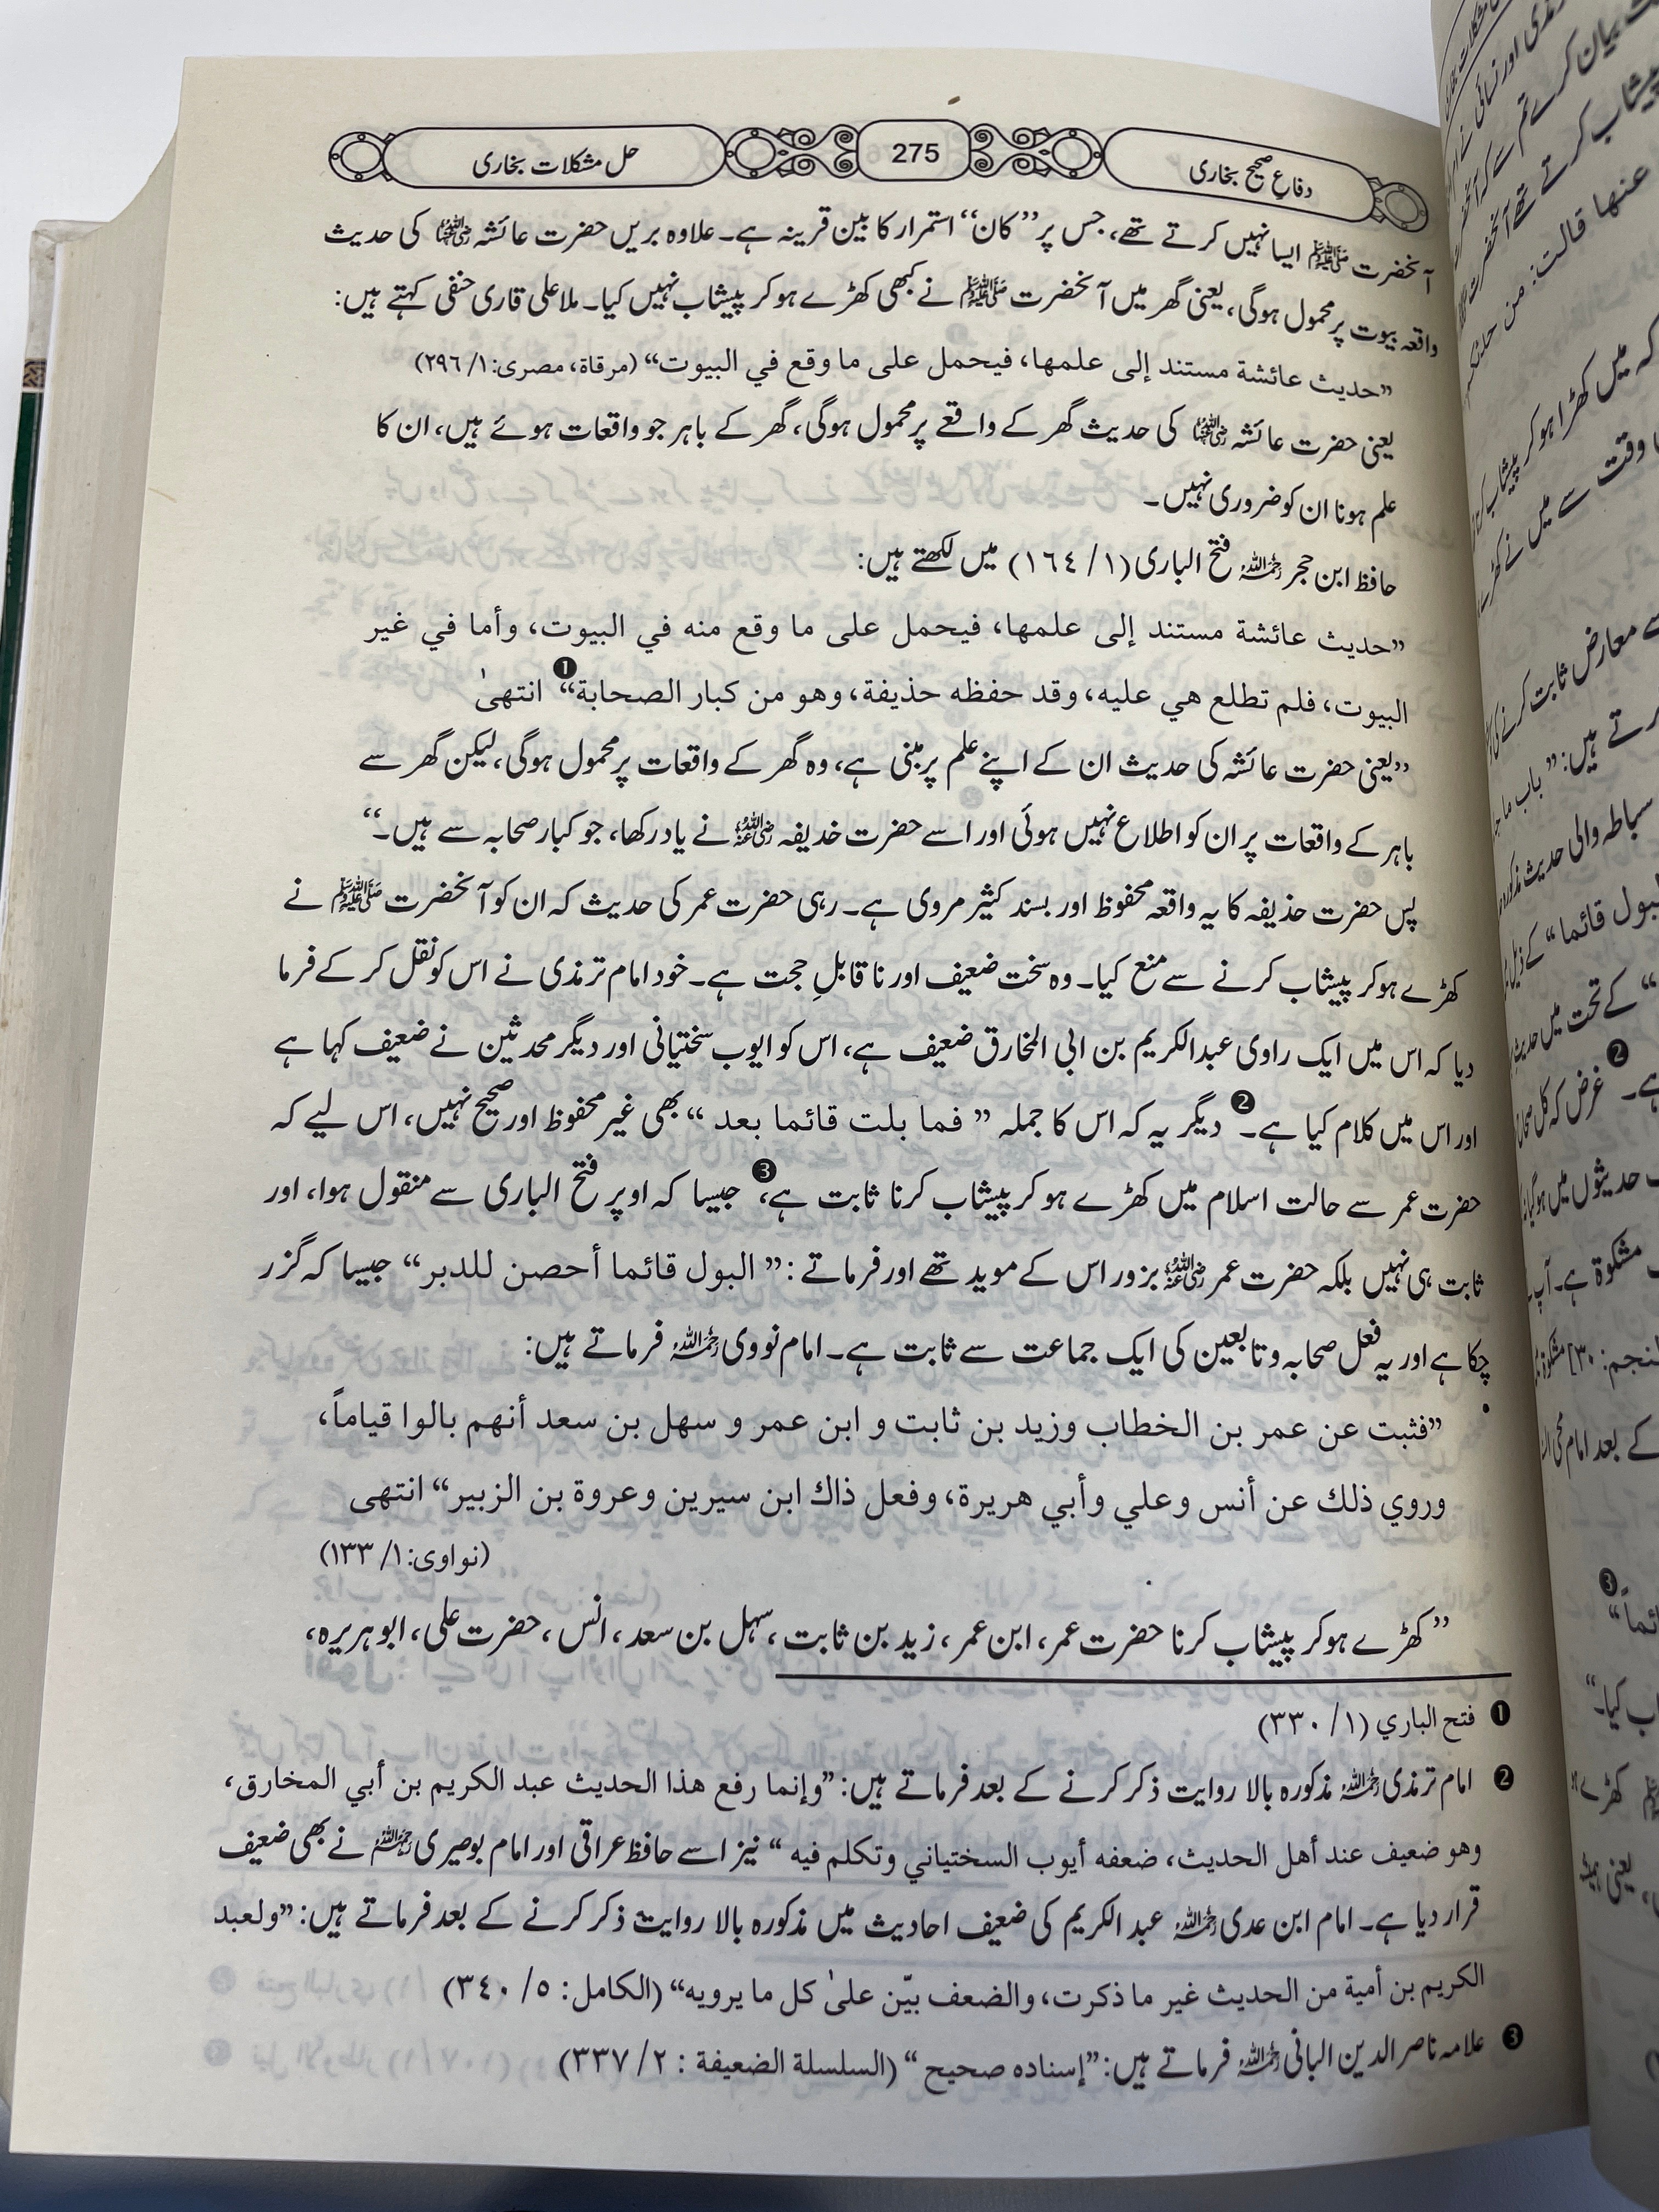 دفاعِ صحیح بخاری 275 حل مشکلات بخاری
آنحضرت ﷺ ایسا نہیں کرتے تھے، جس پر ”کان“ استمرار کا بین قرینہ ہے۔ علاوہ بریں حضرت عائشہ رضی اللہ عنہا کی حدیث
واقعہ بیوت پر محمول ہوگی، یعنی گھر میں آنحضرت ﷺ نے کبھی کھڑے ہو کر پیشاب نہیں کیا۔ ملا علی قاری حنفی کہتے ہیں:
”حدیث عائشة مستند إلى علمها، فيحمل على ما وقع في البيوت“ (مرقاة، مصری: ۱/ ۲۹٦)
یعنی حضرت عائشہ رضی اللہ عنہا کی حدیث گھر کے واقعے پر محمول ہوگی، گھر کے باہر جو واقعات ہوئے ہیں، ان کا
علم ہونا ان کو ضروری نہیں۔
حافظ ابن حجر رحمہ اللہ فتح الباری (۱/ ١٦٤) میں لکھتے ہیں:
”حديث عائشة مستند إلى علمها، فيحمل على ما وقع منه في البيوت، وأما في غير
البيوت، فلم تطلع هي عليه، وقد حفظه حذيفة، وهو من كبار الصحابة“❶ انتهىٰ
”یعنی حضرت عائشہ کی حدیث ان کے اپنے علم پر مبنی ہے، وہ گھر کے واقعات پر محمول ہوگی، لیکن گھر سے
باہر کے واقعات پر ان کو اطلاع نہیں ہوئی اور اسے حضرت خدیفہ رضی اللہ عنہ نے یاد رکھا، جو کبار صحابہ سے ہیں۔“
پس حضرت حذیفہ کا یہ واقعہ محفوظ اور بسند کثیر مروی ہے۔ رہی حضرت عمر کی حدیث کہ ان کو آنحضرت ﷺ نے
کھڑے ہو کر پیشاب کرنے سے منع کیا۔ وہ سخت ضعیف اور نا قابلِ حجت ہے۔ خود امام ترمذی نے اس کو نقل کر کے فرما
دیا کہ اس میں ایک راوی عبدالکریم بن ابی المخارق ضعیف ہے، اس کو ایوب سختیانی اور دیگر محدثین نے ضعیف کہا ہے
اور اس میں کلام کیا ہے۔❷ دیگر یہ کہ اس کا جملہ ” فما بلت قائما بعد “ بھی غیر محفوظ اور صحیح نہیں، اس لیے کہ
حضرت عمر سے حالت اسلام میں کھڑے ہو کر پیشاب کرنا ثابت ہے،❸ جیسا کہ اوپر فتح الباری سے منقول ہوا، اور
ثابت ہی نہیں بلکہ حضرت عمر رضی اللہ عنہ بزور اس کے موید تھے اور فرماتے: ” البول قائما أحصن للدبر“ جیسا کہ گزر
چکا ہے اور یہ فعل صحابہ و تابعین کی ایک جماعت سے ثابت ہے۔ امام نووی رحمہ اللہ فرماتے ہیں:
”فثبت عن عمر بن الخطاب وزيد بن ثابت و ابن عمر و سهل بن سعد أنهم بالوا قياماً،
وروي ذلك عن أنس وعلي وأبي هريرة، وفعل ذاك ابن سيرين وعروة بن الزبير“ انتهى
(نواوی: ۱/ ۱۳۳)
”کھڑے ہو کر پیشاب کرنا حضرت عمر، ابن عمر، زید بن ثابت، سہل بن سعد، انس، حضرت علی، ابو ہریرہ،
❶ فتح الباري (١/ ٣٣٠)
❷ امام ترمذی رحمہ اللہ مذکورہ بالا روایت ذکر کرنے کے بعد فرماتے ہیں: ”وإنما رفع هذا الحديث عبد الكريم بن أبي المخارق،
وهو ضعيف عند أهل الحديث، ضعفه أيوب السختياني وتكلم فيه “ نیز اسے حافظ عراقی اور امام بوصیری رحمہما اللہ نے بھی ضعیف
قرار دیا ہے۔ امام ابن عدی رحمہ اللہ عبد الکریم کی ضعیف احادیث میں مذکورہ بالا روایت ذکر کرنے کے بعد فرماتے ہیں: ”ولعبد
الكريم بن أمية من الحديث غير ما ذكرت، والضعف بيّن علىٰ كل ما يرويه“ (الكامل: ٥/ ٣٤٠)
❸ علامہ ناصر الدین البانی رحمہ اللہ فرماتے ہیں: ”إسناده صحيح “ (السلسلة الضعيفة : ٢/ ٣٣٧)